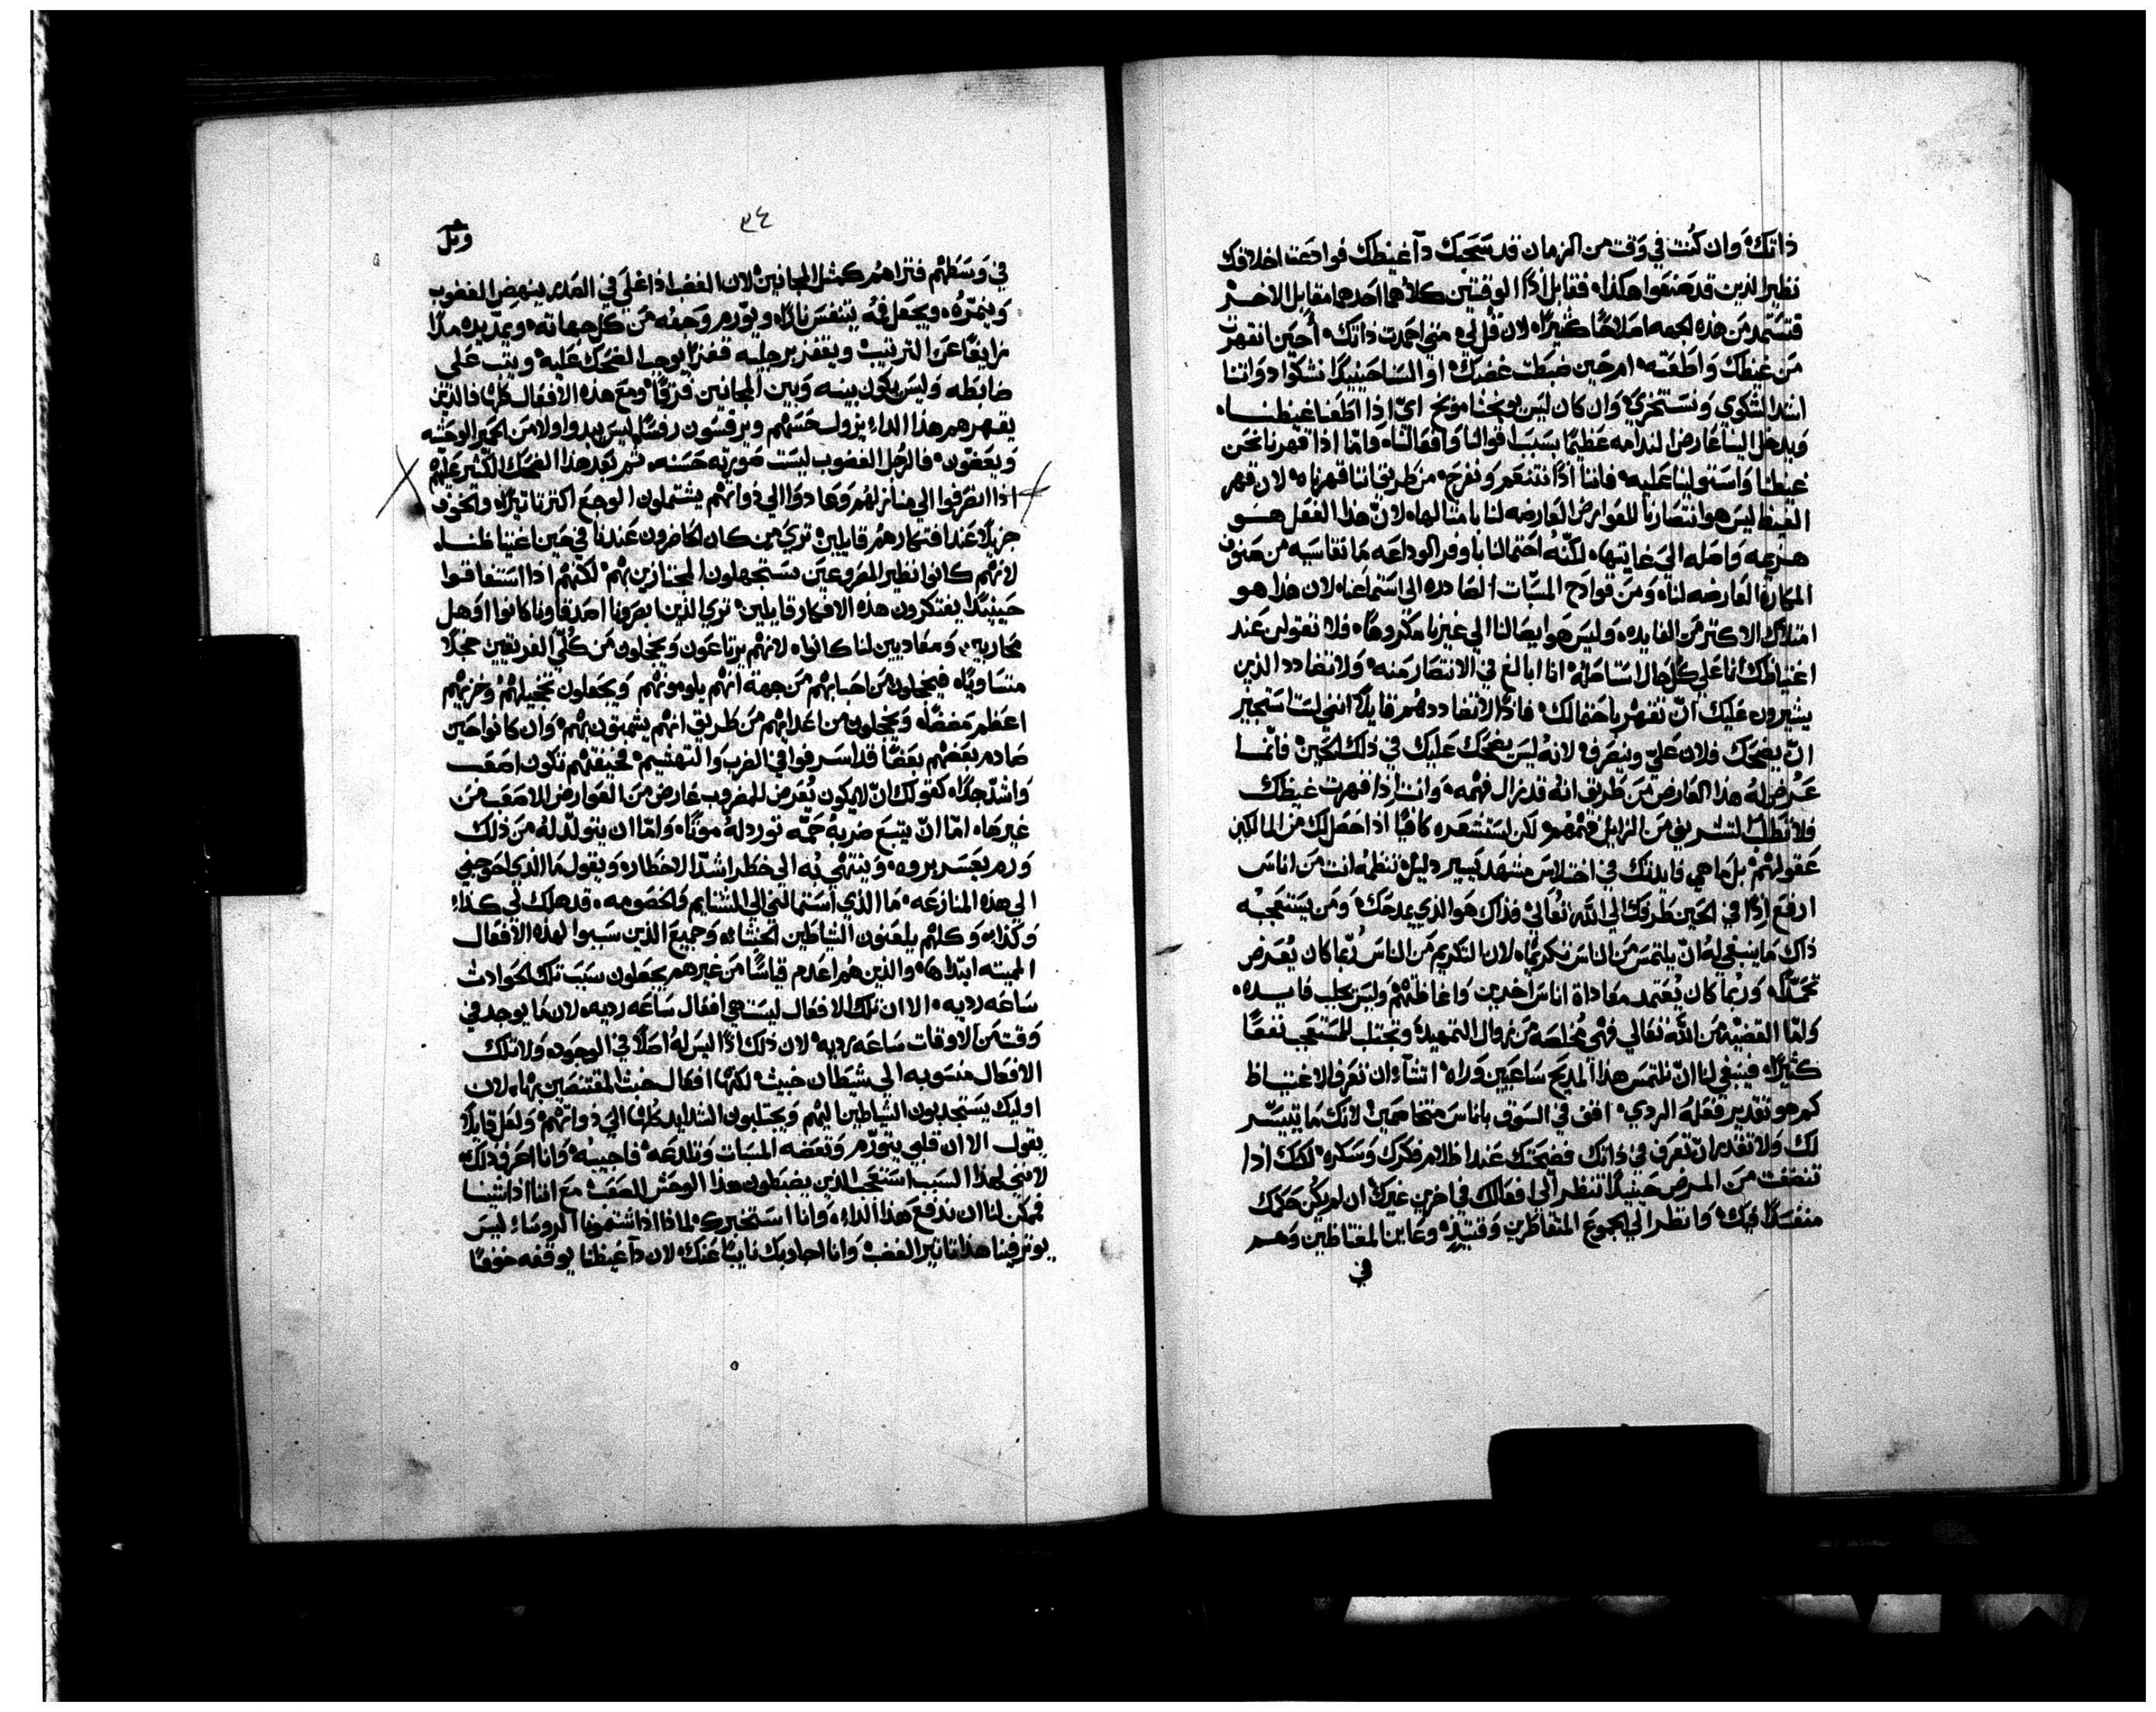 ذاتك، وان كنت في وقت من الزمان قد سحبك دآ غيظك فوادعت اخلاقك
نظير الذين قد صنعوا هكذا، فقابل اذًا الوقتين كلاهما احدهما مقابل الاخر
فتستمد من هذه الجهه اصلاحًا كثيرًا، لان قل لي، متي احمدت ذاتك، أحين انقهرت
من غيظك واطعته، ام حين ضبطت غضبك، او السنا حينيذًا نشكوا ذواتنا
اشد الشكوي ونستخزي، وان كان ليس يوبخنا موبخ اي اذا اطعنا غيظنا،
ويدخل الينا عارض الندامه عظيمًا بسبب اقوالنا وافعالنا، فامّا اذا قهرنا نحن
غيظنا واستولينا عليه، فاننا اذًا نتنعم ونفرح، من طريق اننا قهرناه، لان قهر
الغيظ ليس هو انتصارنا للعوارض العارضه لنا بامثالها، لانّ هذا الفعل هو
هزيمه واصله الي غايتها، لكنّه احتمالنا باوفر الوداعه ما نقاسيه من صنوف
المكاره العارضه لنا، ومن قوادح المسبّات الصادره الي استماعنا، لان هذا هو
امتلاك الاكثر من الفايده، وليس هو ايصالنا الي غيرنا مكروهًا، فلا تقولن عند
اغتياظك انا علي كل حال استاصله، انا ابالغ في الانتصار منه، ولا تضادد الذين
يشيرون عليك انّ تقهر باحتمالك، فاذًا لا تضاددهم قايلًا انني لست استجيز
انّ يضحك فلان عليّ وينصرف، لانه ليس يضحك عليك في ذلك الحين، فانّما
عرض له هذا العارض من طريق انه قد زال فهمه، وانت اذا قهرت غيظك
فلا تطلب التشريف من الزايل فهمهم، لكن استشعره كافيًا اذا حصل لك من المالكين
عقولهم، بل ما هي فايدتك في اختلاس مشهد يسير دليل تنظمه انت من اناس
ارفع اذًا في الحين طرفك الي الله تعالي، فذاك هو الذي يمدحك، ومن يستعجبه
ذاك ما ينبغي له انّ يلتمس من الناس تكريمًا، لان التكريم من الناس ربّما كان يعرض
تمحّلًا، وربما كان يعتمد معاداة اناس اخرين واغاظتهم، وليس يجلب فايده،
وامّا القضيه من الله تعالي فهي مخلصه من زوال التمهيد، وتجتلب للمستعجب نفعًا
كثيرًا، فينبغي لنا انّ نلتمس هذا المديح ساعيين وراه، اتشاء ان تعرف الاغتياظ
كم هو تقدير فعله الردي، اقف في السوق باناس متخاصمين، لانك ما تيسّر
لك ولا تقدر انّ تعرف في ذاتك فضيحتك عند اظلام فكرك وسكره، لكنك اذا
تنظفت من المرض حينيذًا تنظر الي افعالك في اخرين غيرك ان لم يكن حكمك
منفسدًا فيك، وانظر الي الجموع المتقاطرين وقتيذٍ، وعاين المغتاظين وهم
في
٣٤
وثل
في وسطهم فتراهم كمثل المجانين، لان الغضب اذا غلي في الصدر ينهض الغضوب
وينمّره، ويجعل فمه يتنفس نارًا، ويورّم وجهه من كل جهاته، ويمدّ يده مدًا
زايغًا عن الترتيب، ويقفز برجليه قفزًا يوجب الضحك عليه، ويثب علي
ضابطه وليس يكون بينه وبين المجانين فرقًا، ومع هذه الافعال كلها فالذين
يقهرهم هذا الداء يزول حسّهم ويرفسون رفسًا ليس يبدوا ولا من الحمير الوحشيه
ويعضّون، فالرجل الغضوب ليست صورته حسنه، ثم بعد هذا الضحك الكثير عليهم
اذا انصرفوا الي منازلهم وعادوا الي ذواتهم يشتملون الوجع اكثر تاثيرًا، والخوف
جزيلًا عند افتكارهم قايلين، تري من كان الحاضرون عندنا في حين اغتياظنا،
لانهم كانوا نظير المصروعين يستجهلون المجتازين بهم، لكنهم اذا استفاقوا
حينيذًا يفتكرون هذه الافكار قايلين، تري الذين ابصرونا اصدقاونا كانوا اوهل
محاربين ومعاديين لنا كانوا، لانهم يرتاعون ويخجلون من كلّي الفريقين خجلًا
متساويًا، فيخجلون من احبابهم من جهة انهم يلومونهم ويجعلون تخجيلهم وخزيهم
اعظم مضضًا، ويخجلون من اعدايهم من طريق انهم يشمتون بهم، وان كانوا حين
صادم بعضهم بعضًا قد اسرفوا في الضرب والتهشيم، فخيفتهم تكون اصعب
واشدّ جدًا، كقولك انّ لا يكون يعرض للمضروب عارض من العوارض الاصعب من
غيرها، امّا انّ يتبع ضربه حمّه تورد له موتًا، وامّا ان يتولّد له من ذلك
ورم يعسر بروه، وينتهي به الي خطر اشدّ الاخطار، ويقول ما الذي احوجني
الي هذه المنازعه، ما الذي استمالني الي المشتايم والخصومه، قد هلك لي كذا
وكذا، وكلهم يلعنون الشياطين الخبثا، وجميع الذين سببوا لهذه الافعال
المميته ابتداها، والذين هم اعدم قياسًا من غيرهم يجعلون سبب تلك الحوادث
ساعه رديه، الا ان تلك الافعال ليست هي افعال ساعه رديه، لان ما يوجد في
وقت من الاوقات ساعه رديه، لان ذلك اذًا ليس له اصلًا في الوجود، ولا تلك
الافعال منسوبه الي شيطان خبيث، لكنها افعال خبث المقتنصين بها، لان
اوليك يستجذبون الشياطين اليهم ويجتلبون الشدايد كلها الي ذواتهم، ولعل قايلًا
يقول الا ان قلبي يتورّم وتعضه المسبات وتلدغه، فاجيبه، وانا اعرف ذلك
لانني لهذا السبب استعجب الذين يضبطون هذا الوحش الصعب، مع اننا اذا شينا
فممكن لنا ان ندفع هذا الداء، وانا استخبرك لماذا اذا شتمونا الروساء ليس
يوثر فينا هذا تاثير الغضب، وانا اجاوبك نايبًا عنك، لان دآ غيظنا يوقفه خوفًا